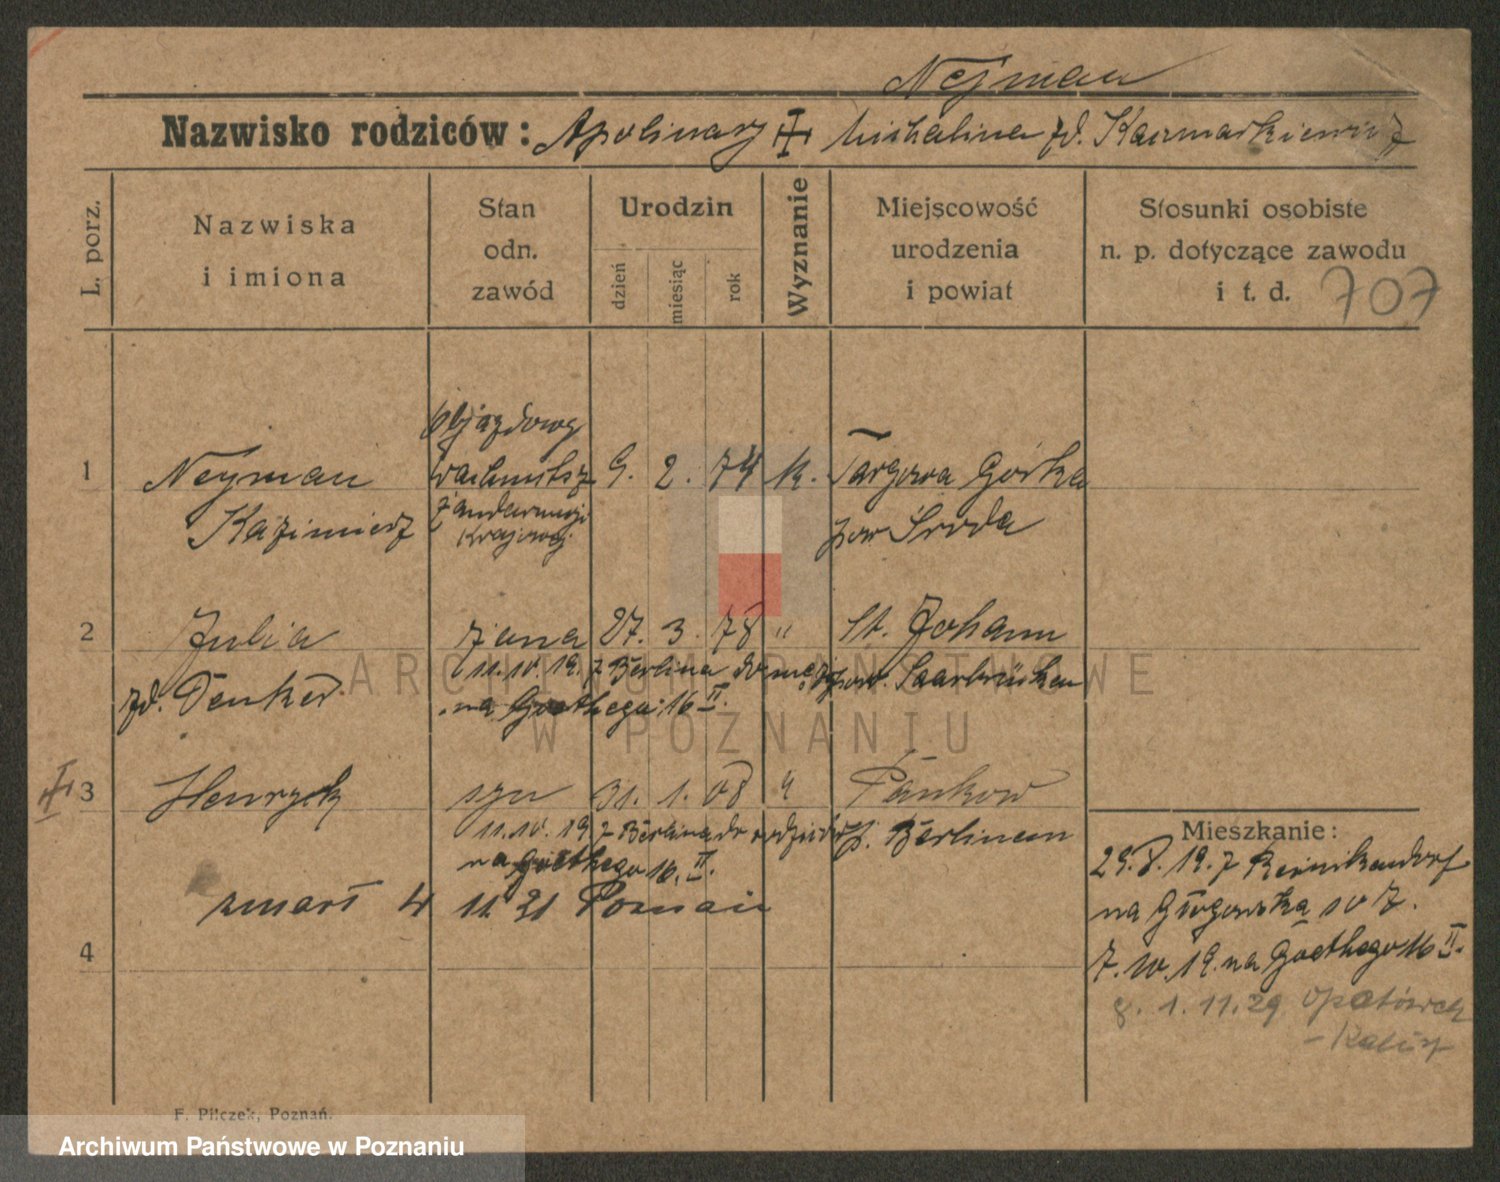 Nejman
Nazwisko rodziców: Apolinary ‡ Michalina zd. Kaczmarkiewicz
L. porz.
Nazwiska
i imiona
Stan
odn.
zawód
Urodzin
dzień
miesiąc
rok
Wyznanie
Miejscowość
urodzenia
i powiat
Stosunki osobiste
n. p. dotyczące zawodu
i t. d. 707
1
Neyman
Kazimierz
objazdowy
wachmistrz
żandarmerji
Krajowej
9. 2. 74 k.
Targowa Górka
pow Środa
2
Julia
zd. Denker
żona 27. 3. 78 "
St. Johann
pow. Saarbrücken
11.10.19. z Berlina do męża
na Goethego 16 II.
3
Henryk
syn 31. 1. 08 "
Pankow
p. Berlinem
11.10.19 z Berlina do rodziców
na Goethego 16. II.
zmarł 4 11 21 Poznań
4
Mieszkanie:
29.8.19. z Reinikendorf
na Głogowską 107.
7.10.19. na Goethego 16 II.
8. 1.11.29 Opatówek
- Kalisz
F. Pilczek, Poznań.
ARCHIWUM PAŃSTWOWE
W POZNANIU
Archiwum Państwowe w Poznaniu